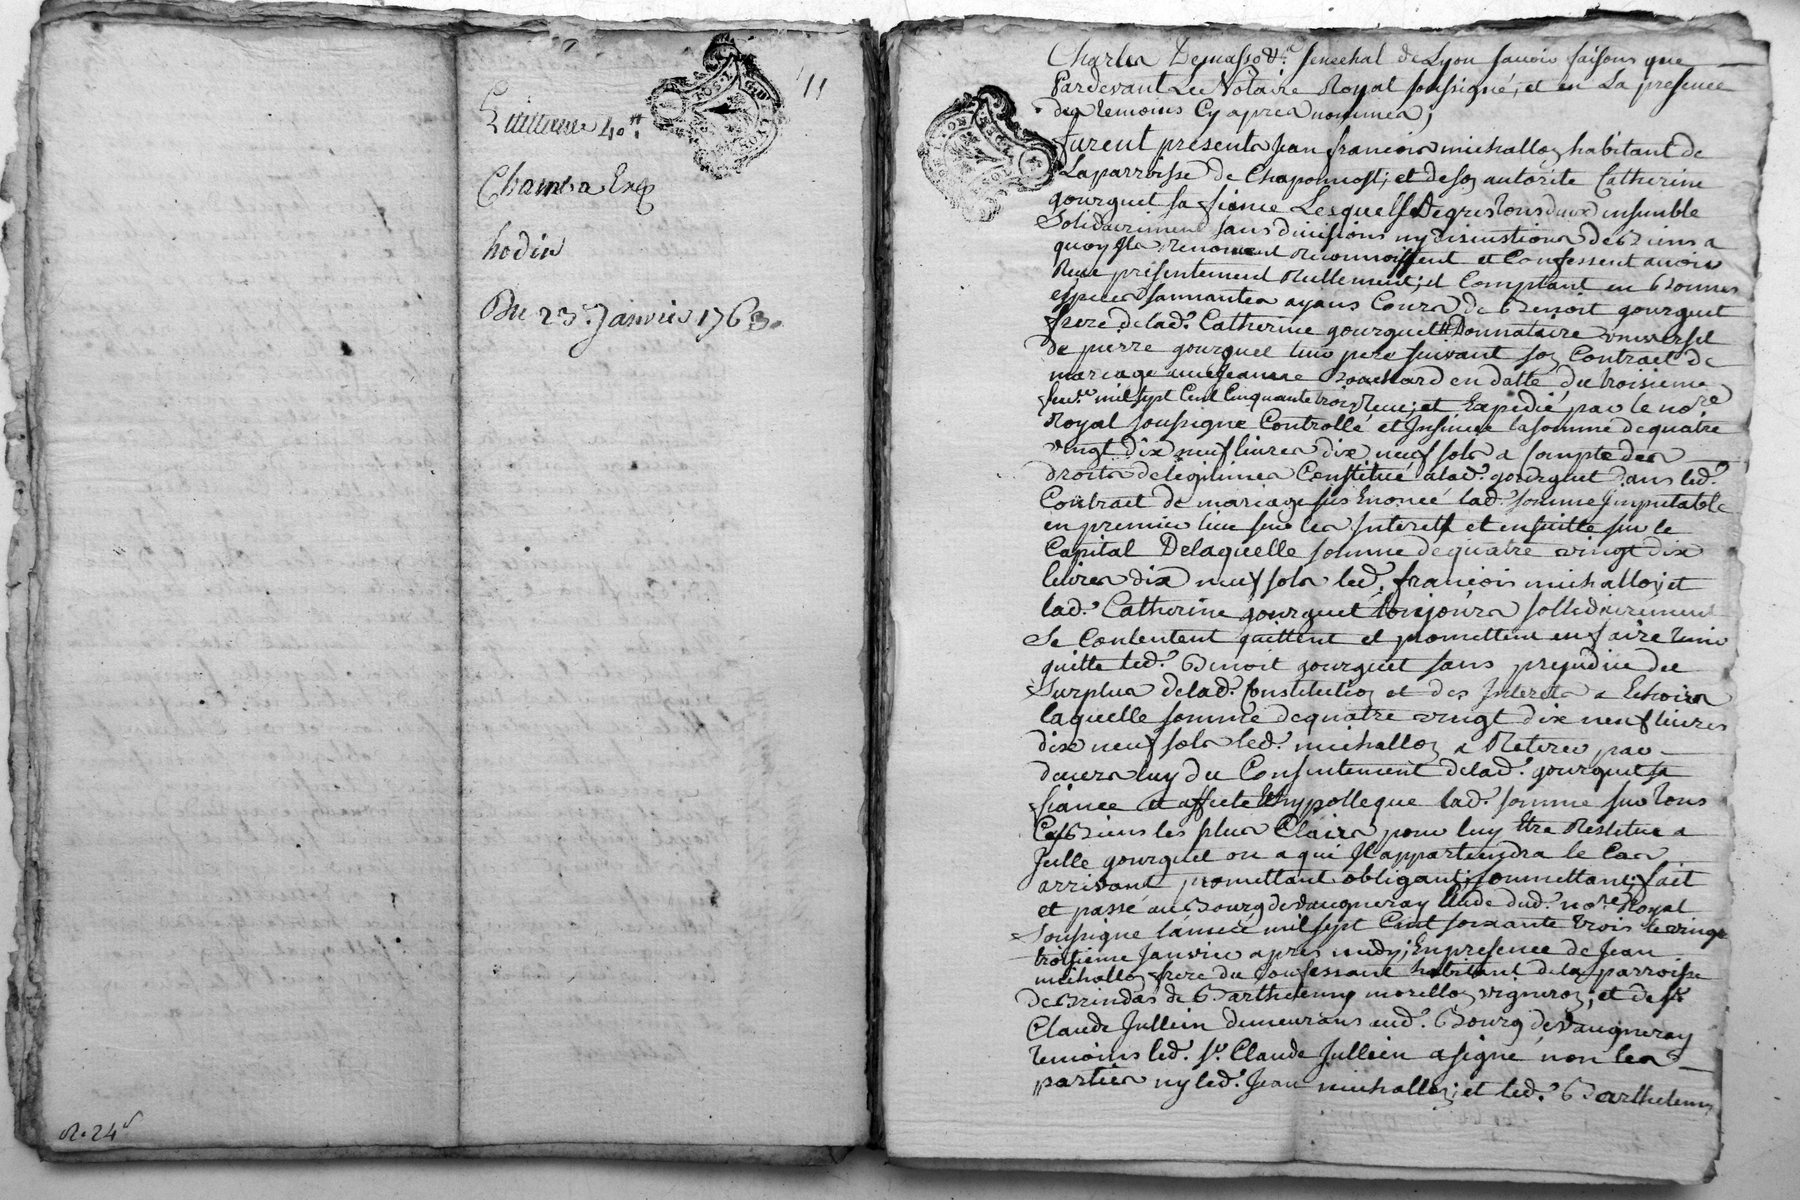 11
Quittance 40 ₶
Chamba Exp
hodin
Du 23e. Janvier 1763.
R. 24s
Charles Demasso &a. senechal de Lyon savoir faisons que
Pardevant Le Notaire Royal soussigné, et en La presence
des temoins Cy apres nommés,
furent presents Jean francois michallon habitant de
Laparroisse de Chaponnost, et deson autorité Catherine
gourguet sa fiance Lesquelles Degres tous deux ensemble
Solidairement sans divisions ny discustions de Biens a
quoy Ils renoncent reconnoissent et Confessent avoir
Receu présentement Reellement, et Comptant en Bonnes
especes sonnantes ayans Cours de Benoit gourguet
frere de lad. Catherine gourguet Donnataire universel
de pierre gourguet leur pere suivant son Contract de
mariage avec Jeanne Bouchard en datte du troisieme
fev.re mil sept Cent Cinquante trois Receu, et Expedié par le no.re
Royal soussigne Controllé et Insinué la somme de quatre
vingt dix neuf livres dix neuf sols a compte des
droits de legitimes Constitué a lad. gourguet dans led.
Contract de mariage sus Enoncé lad. somme Imputable
en premier lieu sur les Interets et ensuitte sur le
Capital De laquelle somme de quatre vingt dix
livres dix neuf sols led. françois michallon et
lad. Catherine gourguet toujours sollidairement
Se Contentent quittent et promettent en faire tenir
quitte led. Benoit gourguet sans prejudice du
Surplus de lad. Constitution et des Interets a Echoirs
laquelle somme de quatre vingt dix neuf livres
dix neuf sols led. michallon a Retiré par
devers luy du Consentement de lad. gourguet sa
fiancé et affecté Et hypotteque lad. somme sur tous
Ces Biens les plus Clairs pour luy Etre Restitué a
Jcelle gourguet ou a qui Il appartiendra le Cas
arrivant promettant obligant, soummettant, fait
et passé au Bourg de vaugneray Etude dud. no.re Royal
Soussigne l'année mil sept Cent soixante trois le vingt
troisieme Janvier apres midy, En presence de Jean
michallon frere du Confessant habitant de la parroisse
de Brindas de Barthelemy morellon vigneron, et de sr.
Claude Jullien demeurans aud. Bourg de Vaugneray
temoins led. sr. Claude Jullien a signé non les
parties ny led. Jean michallon, et led. Barthelemy